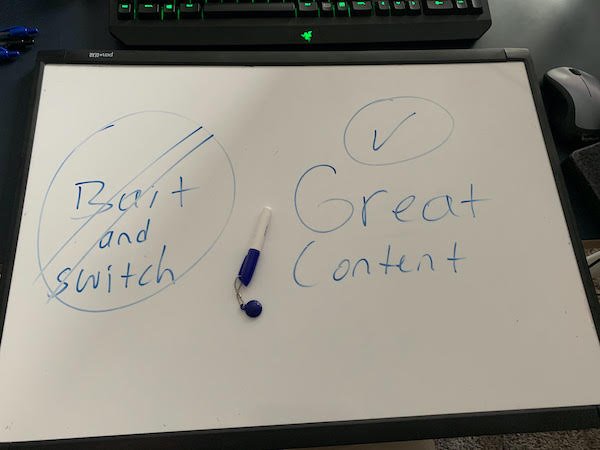 Bait
and
switch
Great
Content